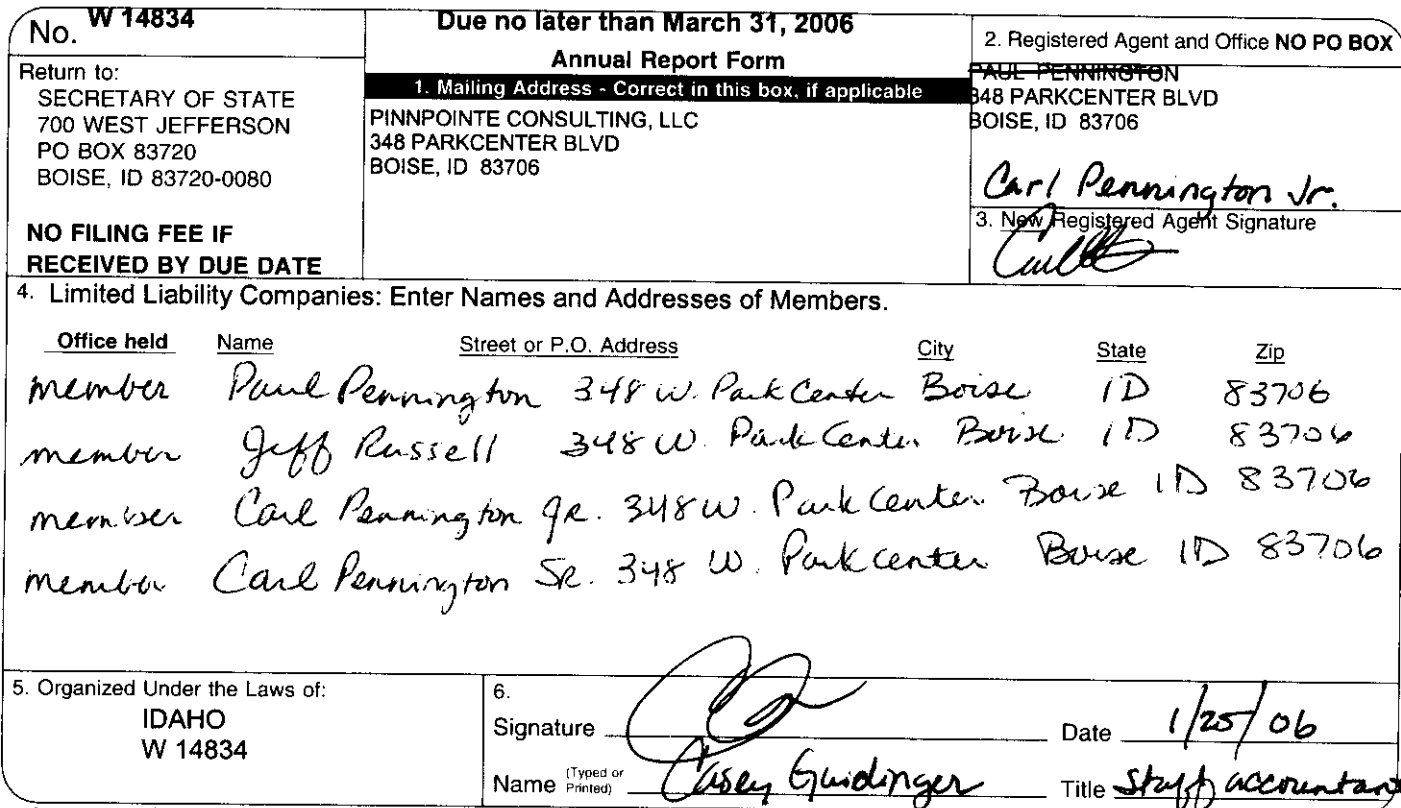 No. W 14834
Return to:
SECRETARY OF STATE
700 WEST JEFFERSON
PO BOX 83720
BOISE, ID 83720-0080
NO FILING FEE IF
RECEIVED BY DUE DATE
Due no later than March 31, 2006
Annual Report Form
1. Mailing Address - Correct in this box, if applicable
PINNPOINTE CONSULTING, LLC
348 PARKCENTER BLVD
BOISE, ID 83706
2. Registered Agent and Office NO PO BOX
PAUL PENNINGTON
348 PARKCENTER BLVD
BOISE, ID 83706
Carl Pennington Jr.
3. New Registered Agent Signature
4. Limited Liability Companies: Enter Names and Addresses of Members.
Office held Name Street or P.O. Address City State Zip
member Paul Pennington 348 W. ParkCenter Boise ID 83706
member Jeff Russell 348 W. ParkCenter Boise ID 83706
member Carl Pennington JR. 348 W. Parkcenter Boise ID 83706
member Carl Pennington SR. 348 W. Parkcenter Boise ID 83706
5. Organized Under the Laws of:
IDAHO
W 14834
6.
Signature Date 1/25/06
Name (Typed or Printed) Casey Guidinger Title Staff accountant